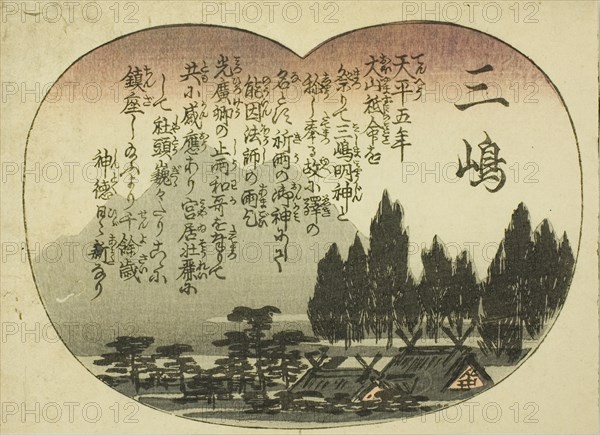 三嶋
天平五年
大山祇命を
祭りて三嶋明神と
称し奉る故に驛の
名とす祈雨の御神にして
能因法師の雨乞
光廣卿の止雨和哥を有りて
共に感應あり宮居壮麗に
して社頭巍々たりこゝに
鎮座し給ふより千餘歳
神徳日々新なり